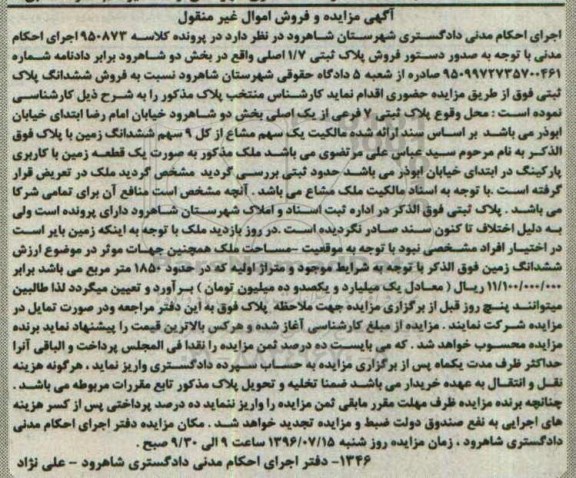 آگهی مزایده و فروش اموال غیر منقول
اجرای احکام مدنی دادگستری شهرستان شاهرود در نظر دارد در پرونده کلاسه ۹۵۰۸۷۳ اجرای احکام
مدنی با توجه به صدور دستور فروش پلاک ثبتی ۱/۷ اصلی واقع در بخش دو شاهرود برابر دادنامه شماره
۹۵۰۹۹۷۲۷۳۵۷۰۰۴۶۱ صادره از شعبه ۵ دادگاه حقوقی شهرستان شاهرود نسبت به فروش ششدانگ پلاک
ثبتی فوق از طریق مزایده حضوری اقدام نماید کارشناس منتخب پلاک مذکور را به شرح ذیل کارشناسی
نموده است : محل وقوع پلاک ثبتی ۷ فرعی از یک اصلی بخش دو شاهرود خیابان امام رضا ابتدای خیابان
ابوذر می باشد بر اساس سند ارائه شده مالکیت یک سهم مشاع از کل ۹ سهم ششدانگ زمین با پلاک فوق
الذکر به نام مرحوم سید عباس علی مرتضوی می باشد ملک مذکور به صورت یک قطعه زمین با کاربری
پارکینگ در ابتدای خیابان ابوذر می باشد حدود ثبتی بررسی گردید مشخص گردید ملک در تعریض قرار
گرفته است .با توجه به اسناد مالکیت ملک مشاع می باشد . آنچه مشخص است منافع آن برای تمامی شرکا
می باشد . پلاک ثبتی فوق الذکر در اداره ثبت اسناد و املاک شهرستان شاهرود دارای پرونده است ولی
به دلیل اختلاف تا کنون سند صادر نگردیده است .در روز بازدید ملک با توجه به اینکه زمین بایر است
در اختیار افراد مشخصی نبود با توجه به موقعیت –مساحت ملک همچنین جهات موثر در موضوع ارزش
ششدانگ زمین فوق الذکر با توجه به شرایط موجود و متراژ اولیه که در حدود ۱۸۵۰ متر مربع می باشد برابر
۱۱/۱۰۰/۰۰۰/۰۰۰ ریال ( معادل یک میلیارد و یکصدو ده میلیون تومان ) برآورد و تعیین میگردد لذا طالبین
میتوانند پنج روز قبل از برگزاری مزایده جهت ملاحظه پلاک فوق به این دفتر مراجعه ودر صورت تمایل در
مزایده شرکت نمایند . مزایده از مبلغ کارشناسی آغاز شده و هرکس بالاترین قیمت را پیشنهاد نماید برنده
مزایده محسوب خواهد شد . که می بایست ده درصد ثمن مزایده را نقدا فی المجلس پرداخت و الباقی آنرا
حداکثر ظرف مدت یکماه پس از برگزاری مزایده به حساب سپرده دادگستری واریز نماید ، هرگونه هزینه
نقل و انتقال به عهده خریدار می باشد ضمنا تخلیه و تحویل پلاک مذکور تابع مقررات مربوطه می باشد .
چنانچه برنده مزایده ظرف مهلت مقرر مابقی ثمن مزایده را واریز ننماید ده درصد پرداختی پس از کسر هزینه
های اجرایی به نفع صندوق دولت ضبط و مزایده تجدید خواهد شد . مکان مزایده دفتر اجرای احکام مدنی
دادگستری شاهرود ، زمان مزایده روز شنبه ۱۳۹۶/۰۷/۱۵ ساعت ۹ الی ۹/۳۰ صبح .
۱۳۴۶- دفتر اجرای احکام مدنی دادگستری شاهرود – علی نژاد